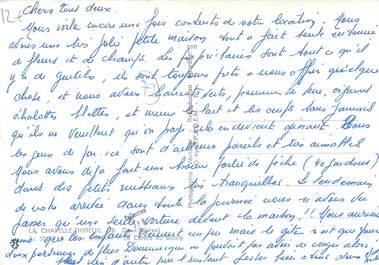 12+
Chers tous deux.
Nous voilà encore une fois contents de notre location. Nous
avons une très jolie petite maison tout à fait seule entourée
de fleurs et de champs. Les propriétaires sont tout ce qu'il
y a de gentils, ils sont toujours prêts à nous offrir quelque
chose, et nous avons haricots verts, pommes de terre,
d'échalottes blettes, et même le lait et les oeufs sans jamais
qu'ils ne veuillent qu'on paye cela en devient gênant. Tous
les gens de par ici sont d'ailleurs pareils et très aimables
Nous avons déjà fait une bonne partie de pêche (40 gardons)
dans des petits ruisseaux très tranquilles. Le lendemain
de notre arrivée dans toute la journée nous n'avons vu
LA CHAPELLE-THIREUIL
passer qu'une seule voiture devant la maison!! Nous aurions
que les enfants viennent un peu mais le gîte n'est que pour
deux personnes de plus Dominique ne pouvait pas avoir de congé alors
d'autre pour l'instant